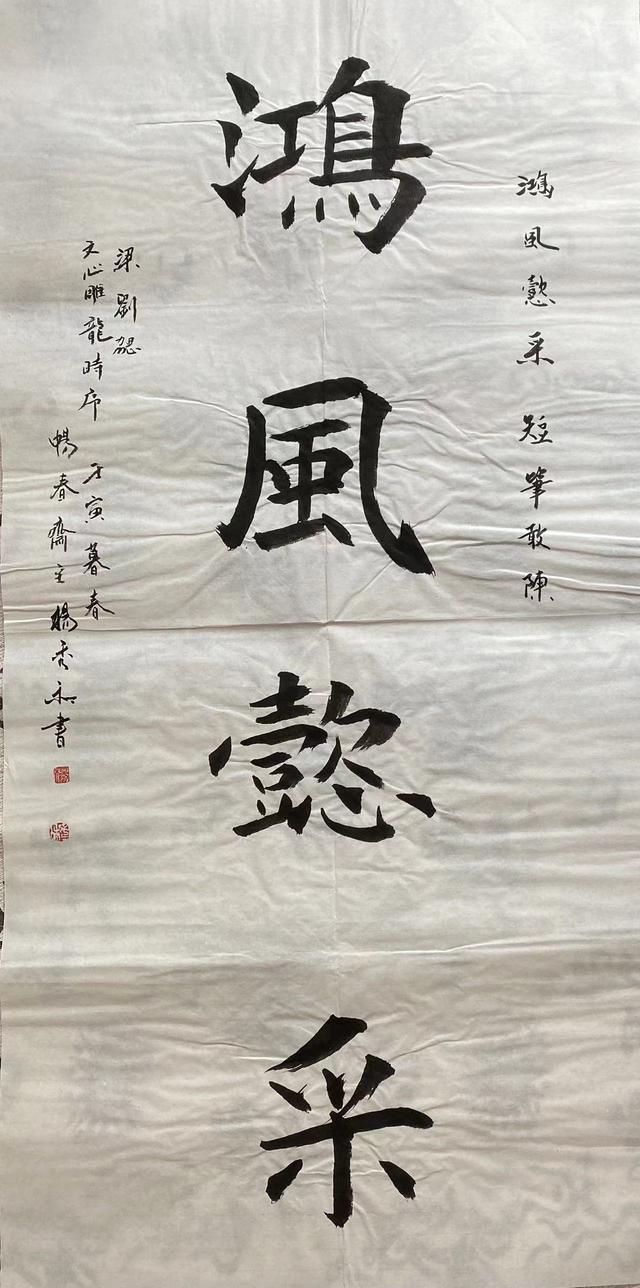 鴻風懿采短筆敢陳
鴻風懿采
梁劉勰
文心雕龍時序壬寅暮春
暢春齋主楊秀和書